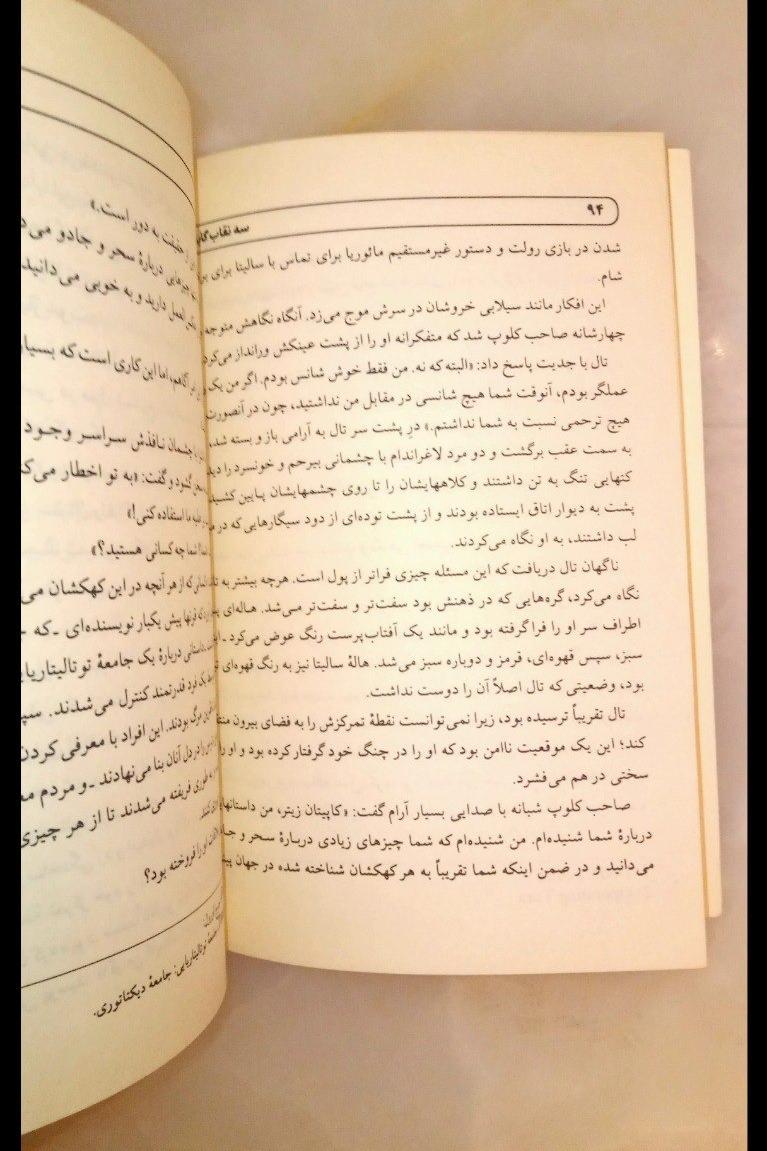 ۹۴
سه نقاب
شدن در بازی رولت و دستور غیرمستقیم مائوریا برای تماس با سالیتا برای
شام.
این افکار مانند سیلابی خروشان در سرش موج می‌زد. آنگاه نگاهش متوجه
چهارشانه صاحب کلوپ شد که متفکرانه او را از پشت عینکش ورانداز می‌کرد
تال با جدیت پاسخ داد: «البته که نه. من فقط خوش شانس بودم. اگر من یک
عملگر بودم، آنوقت شما هیچ شانسی در مقابل من نداشتید، چون در آنصورت
هیچ ترحمی نسبت به شما نداشتم.» درِ پشت سر تال به آرامی باز و بسته شد،
به سمت عقب برگشت و دو مرد لاغراندام با چشمانی بیرحم و خونسرد را
کتهایی تنگ به تن داشتند و کلاههایشان را تا روی چشمهایشان پایین
پشت به دیوار اتاق ایستاده بودند و از پشت توده‌ای از دود سیگارهایی که در
لب داشتند، به او نگاه می‌کردند.
ناگهان تال دریافت که این مسئله چیزی فراتر از پول است. هرچه بیشتر به
نگاه می‌کرد، گره‌هایی که در ذهنش بود سفت‌تر و سفت‌تر می‌شد. هاله‌ای
اطراف سر او را فرا گرفته بود و مانند یک آفتاب‌پرست رنگ عوض می‌کرد ـ
سبز، سپس قهوه‌ای، قرمز و دوباره سبز می‌شد. هالهٔ سالیتا نیز به رنگ قهوه‌ای
بود، وضعیتی که تال اصلاً آن را دوست نداشت.
تال تقریباً ترسیده بود، زیرا نمی‌توانست نقطهٔ تمرکزش را به فضای بیرون
کند؛ این یک موقعیت ناامن بود که او را در چنگ خود گرفتار کرده بود و او را
سختی در هم می‌فشرد.
صاحب کلوپ شبانه با صدایی بسیار آرام گفت: «کاپیتان زیتر، من داستانهای
دربارهٔ شما شنیده‌ام. من شنیده‌ام که شما چیزهای زیادی دربارهٔ سحر و
می‌دانید و در ضمن اینکه شما تقریباً به هر کهکشان شناخته شده در جهان
از حقیقت به دور است.»
چیزهایی دربارهٔ سحر و جادو
العمل دارید و به خوبی می‌دانید
آگاهم، اما این کاری است که
چشمان نافذش سراسر وجود
گشود و گفت: «به تو اخطار
علیه ما استفاده کنی!»
شما چه کسانی هستید؟»
که از هر آنچه در این کهکشان
که قرنها پیش یکبار نویسنده‌ای ـ که
داستانی دربارهٔ یک جامعهٔ
یک فرد قدرتمند کنترل می‌شدند.
مرگ بودند. این افراد با معرفی کردن
را در دل آنان بنا می‌نهادند ـ و مردم
به طوری فریفته می‌شدند تا از هر چیزی
کنند.
او را فروخته بود؟
جامعهٔ توتالیتاریایی: جامعهٔ دیکتاتوری.